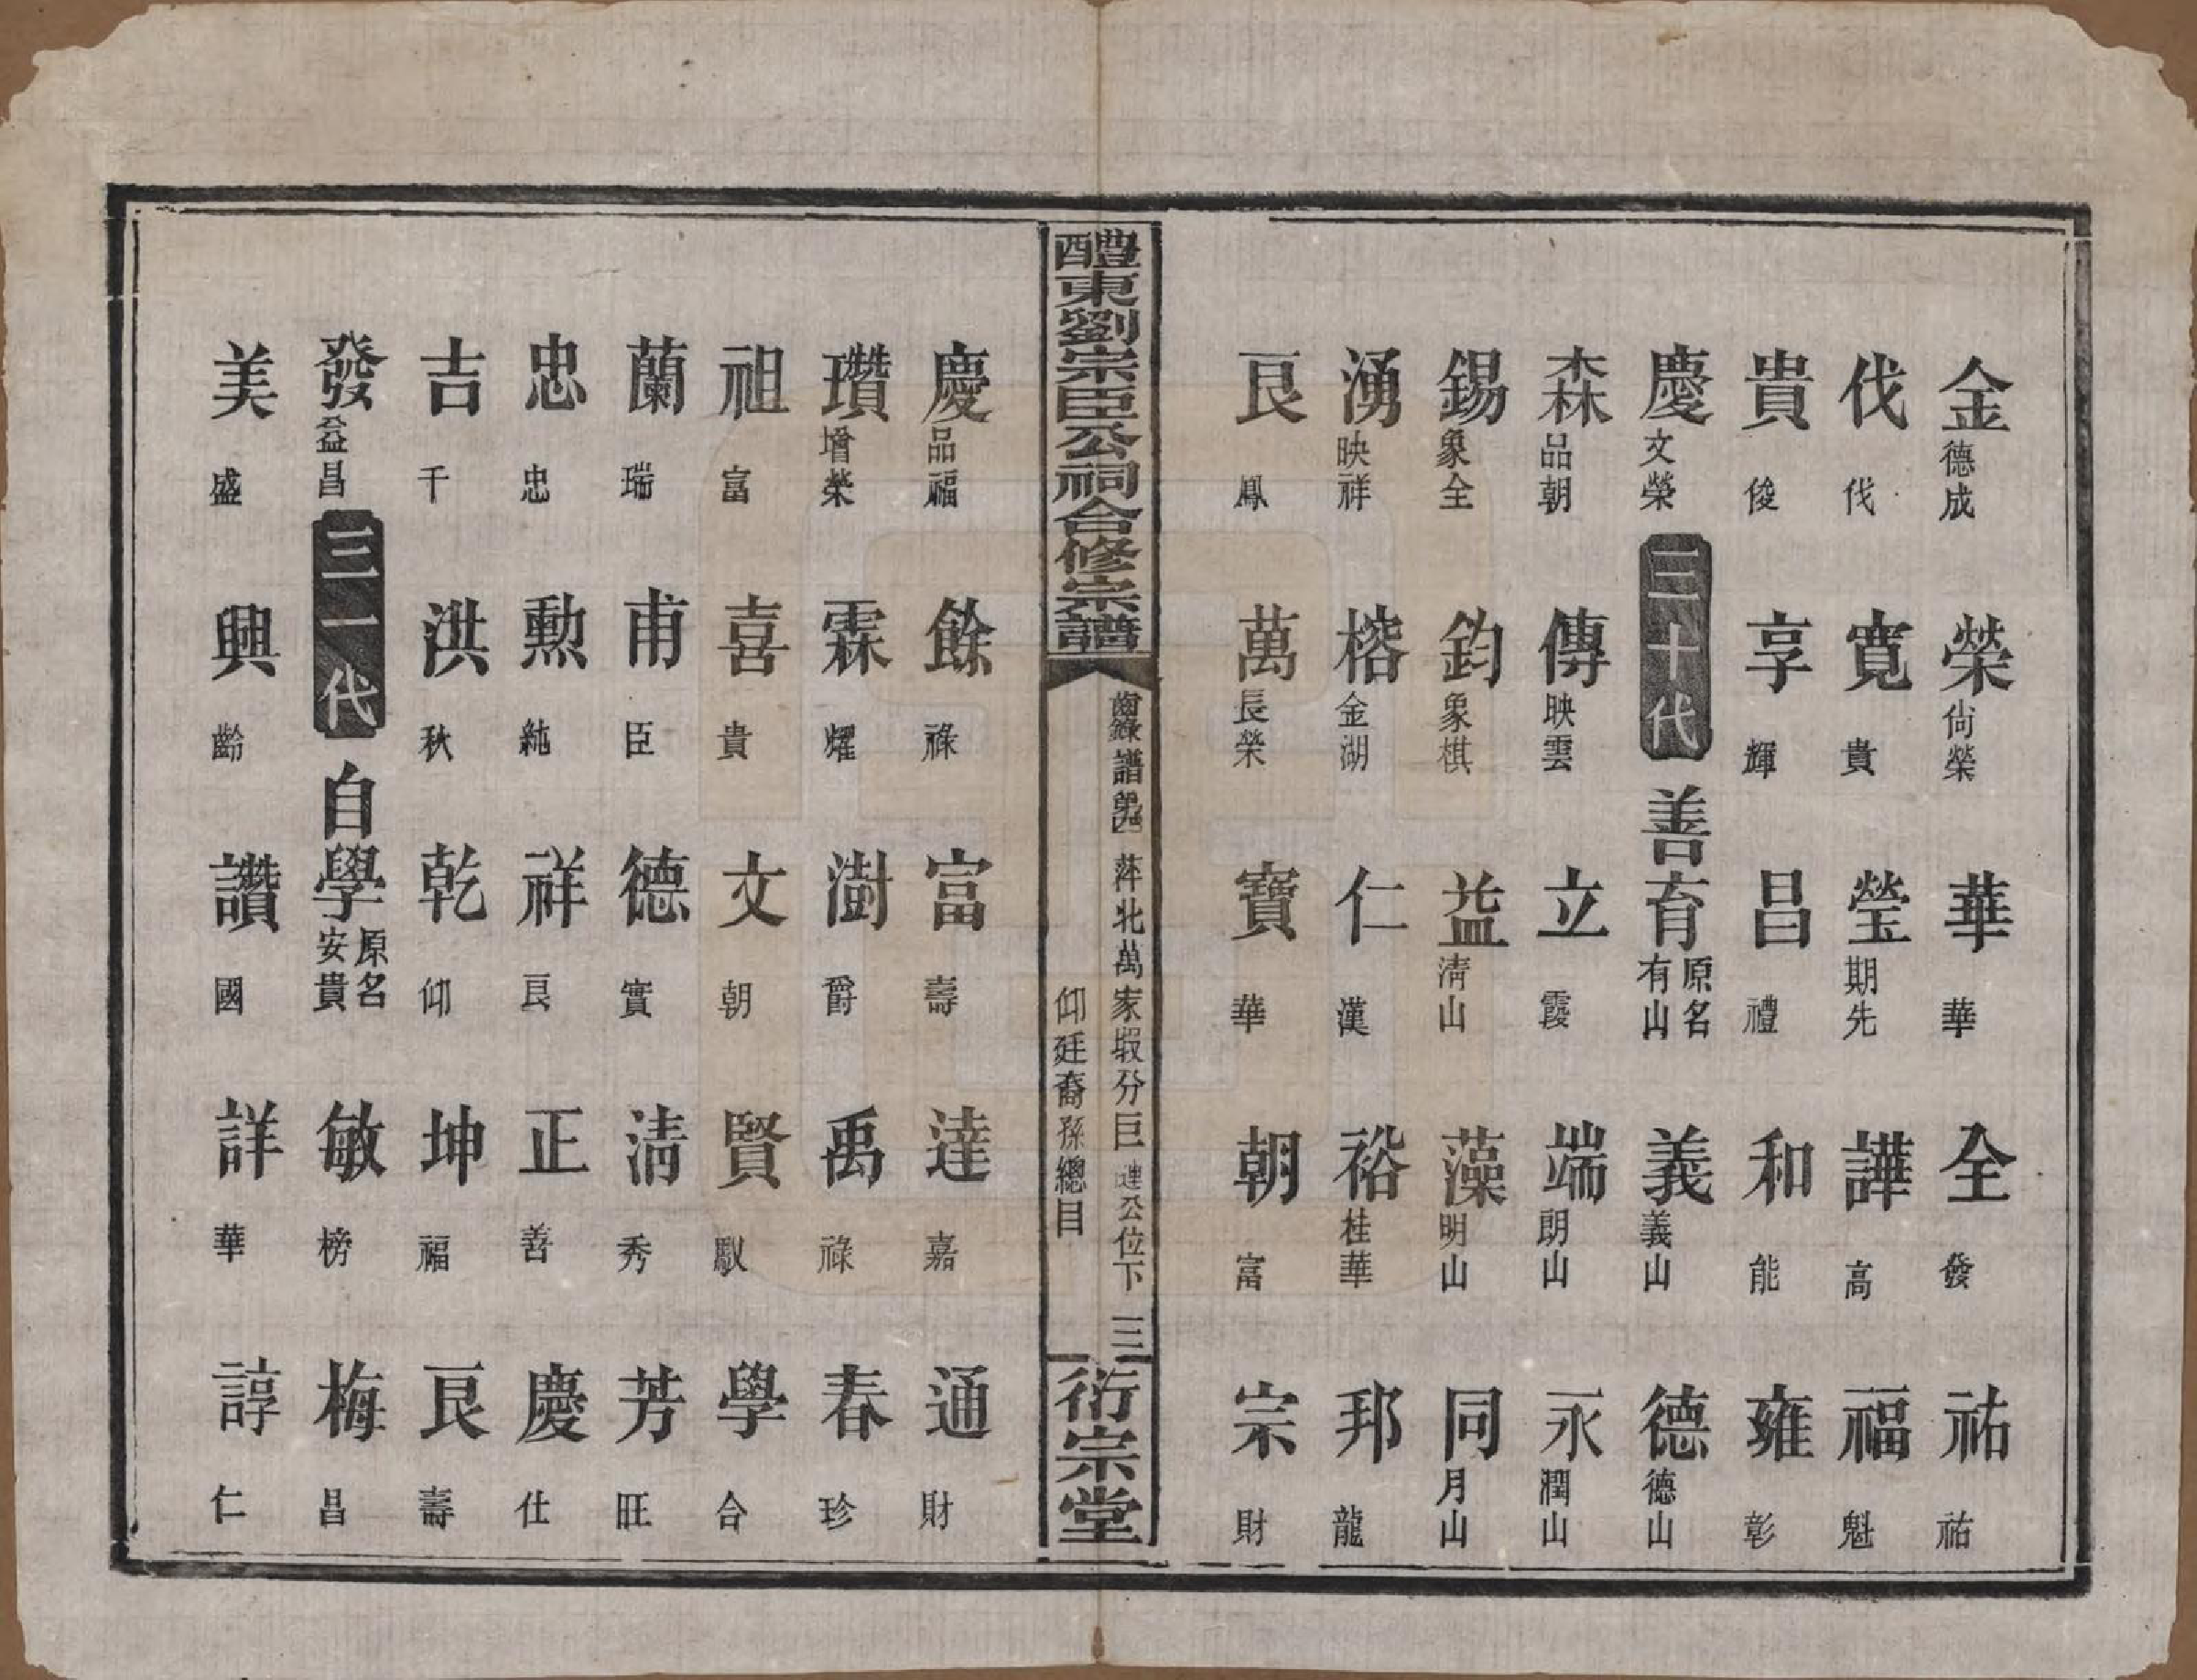 金德成 榮尙榮 華華 全發 祐祐
伐伐 寛貴 瑩期先 譁高 福魁
貴俊 享輝 昌禮 和能 雍彰
慶文榮 三十代 善育原名有山 義義山 德德山
森品朝 傳映雲 立霞 端朗山 永潤山
錫象全 鈞象棋 益淸山 藻明山 同月山
湧映祥 榕金湖 仁漢 裕桂華 邦龍
艮鳳 萬長榮 寶華 朝富 宗財
醴東劉宗臣公祠合修宗譜
齒錄譜 第四 萍北萬家塅分巨璉公位下 三
仰廷裔孫總目
衍宗堂
慶品福 餘祿 富壽 達嘉 通財
瓚增榮 霖耀 澍爵 禹祿 春珍
祖富 喜貴 文朝 賢馭 學合
蘭瑞 甫臣 德實 淸秀 芳旺
忠忠 勲純 祥艮 正善 慶仕
吉千 洪秋 乾仰 坤福 艮壽
發益昌 三一代 自學原名安貴 敏榜 梅昌
美盛 興齡 讚國 詳華 諄仁